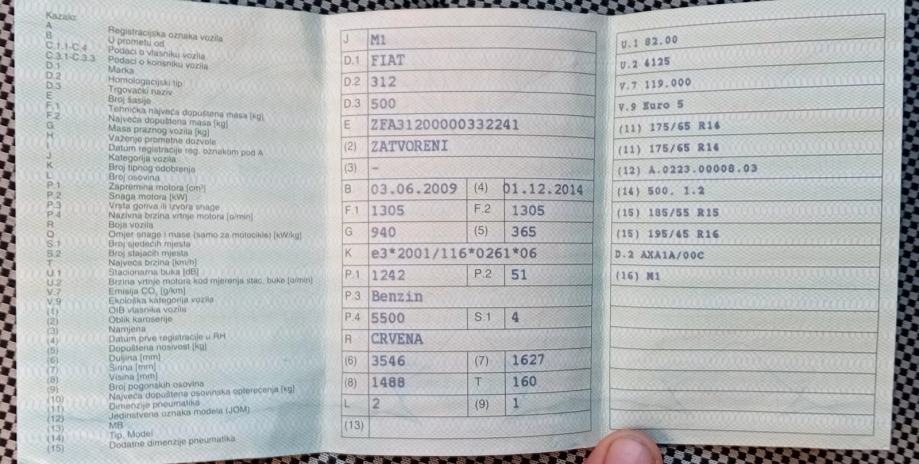 Kazalo:
A Registracijska oznaka vozila
B U prometu od
C.1.1-C.4 Podaci o vlasniku vozila
C.3.1-C.3.3 Podaci o korisniku vozila
D.1 Marka
D.2 Homologacijski tip
D.3 Trgovački naziv
E Broj šasije
F.1 Tehnička najveća dopuštena masa [kg]
F.2 Najveća dopuštena masa [kg]
G Masa praznog vozila [kg]
H Važenje prometne dozvole
I Datum registracije reg. oznakom pod A
J Kategorija vozila
K Broj tipnog odobrenja
L Broj osovina
P.1 Zapremina motora [cm³]
P.2 Snaga motora [kW]
P.3 Vrsta goriva ili izvora snage
P.4 Nazivna brzina vrtnje motora [o/min]
R Boja vozila
Q Omjer snage i mase (samo za motocikle) [kW/kg]
S.1 Broj sjedećih mjesta
S.2 Broj stajaćih mjesta
T Najveća brzina [km/h]
U.1 Stacionarna buka [dB]
U.2 Brzina vrtnje motora kod mjerenja stac. buke [o/min]
V.7 Emisija CO₂ [g/km]
V.9 Ekološka kategorija vozila
(1) OIB vlasnika vozila
(2) Oblik karoserije
(3) Namjena
(4) Datum prve registracije u RH
(5) Dopuštena nosivost [kg]
(6) Duljina [mm]
(7) Širina [mm]
(8) Visina [mm]
(9) Broj pogonskih osovina
(10) Najveća dopuštena osovinska opterećenja [kg]
(11) Dimenzije pneumatika
(12) Jedinstvena oznaka modela (JOM)
(13) MB
(14) Tip, Model
(15) Dodatne dimenzije pneumatika
J M1
D.1 FIAT
D.2 312
D.3 500
E ZFA31200000332241
(2) ZATVORENI
(3) –
B 03.06.2009 (4) 01.12.2014
F.1 1305 F.2 1305
G 940 (5) 365
K e3*2001/116*0261*06
P.1 1242 P.2 51
P.3 Benzin
P.4 5500 S.1 4
R CRVENA
(6) 3546 (7) 1627
(8) 1488 T 160
L 2 (9) 1
(13)
U.1 82.00
U.2 4125
V.7 119.000
V.9 Euro 5
(11) 175/65 R14
(11) 175/65 R14
(12) A.0223.00008.03
(14) 500. 1.2
(15) 185/55 R15
(15) 195/45 R16
D.2 AXA1A/00C
(16) M1